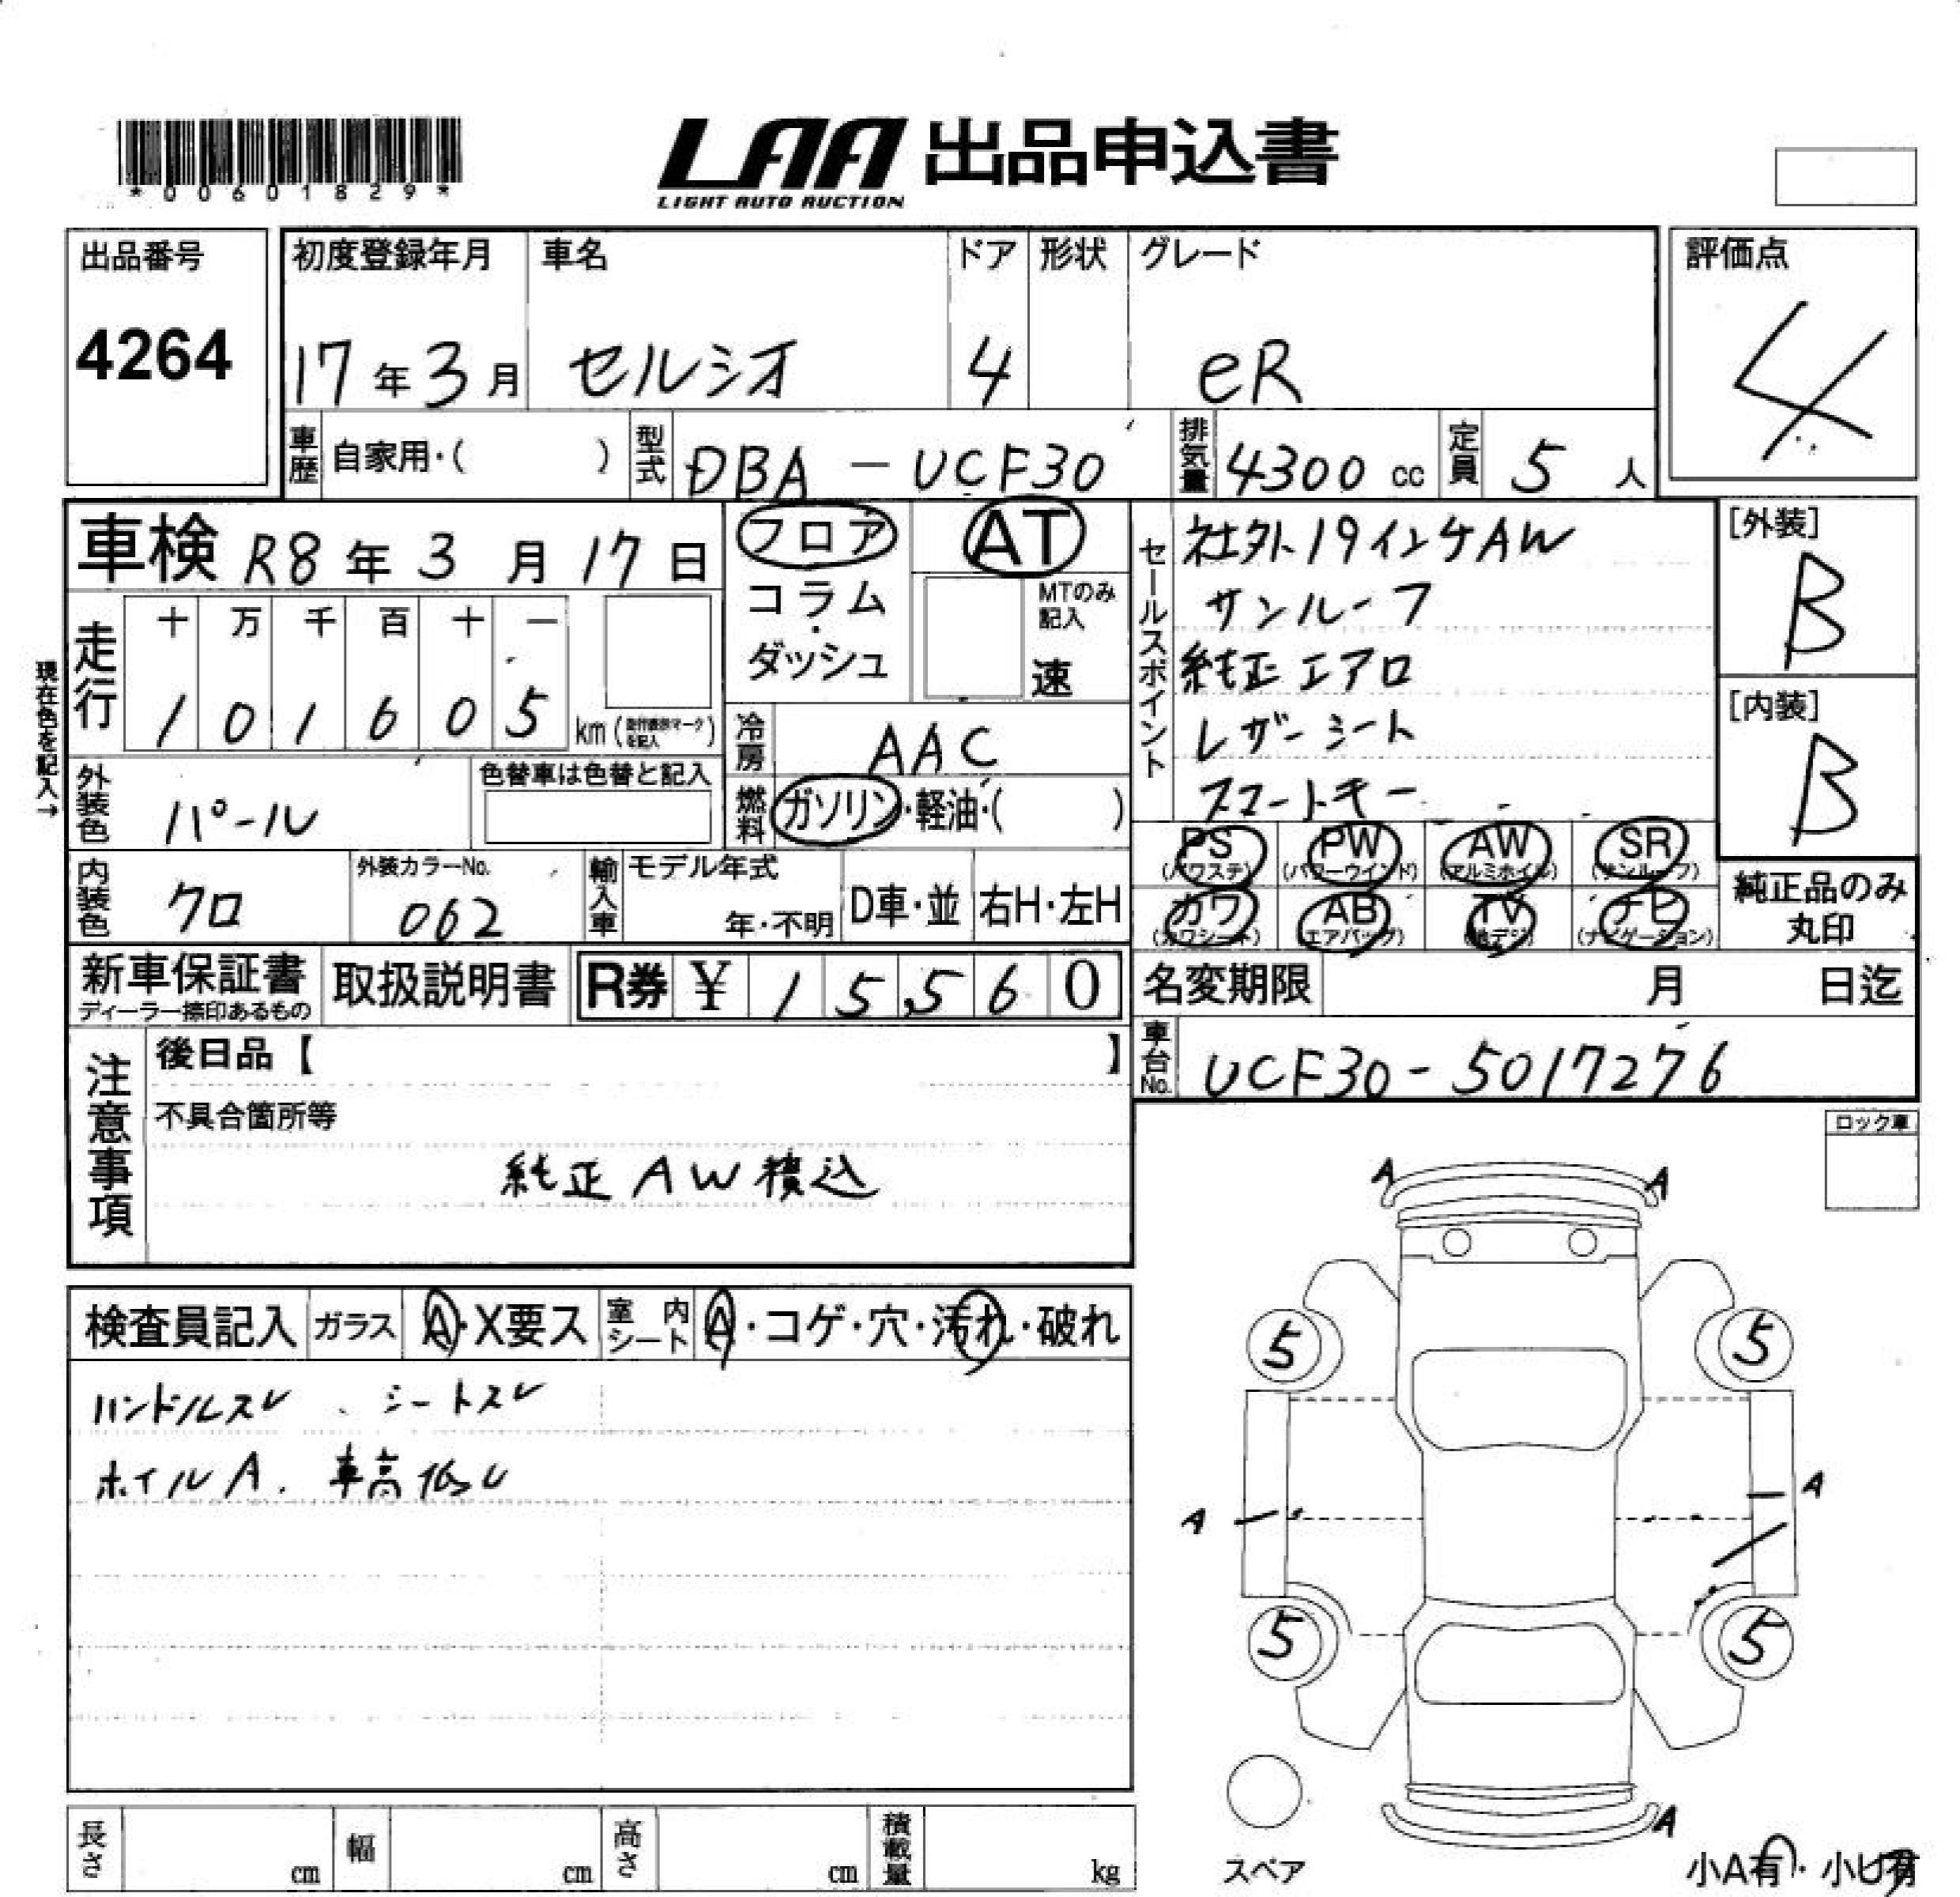 *00601829*
LAA 出品申込書
LIGHT AUTO AUCTION
出品番号
4264
初度登録年月 車名 ドア 形状 グレード
17年3月 セルシオ 4 eR
評価点
4
車歴 自家用・( ) 型式 DBA-UCF30 排気量 4300cc 定員 5人
車検 R8年3月17日
フロア AT
コラム・ダッシュ
MTのみ記入
速
セールスポイント
社外19インチAW
サンルーフ
純正エアロ
レザーシート
スマートキー
[外装]
B
[内装]
B
現在色を記入→
走行 十 万 千 百 十 一
1 0 1 6 0 5 km
冷房 AAC
外装色 パール 色替車は色替と記入
燃料 ガソリン・軽油・( )
PS (パワステ) PW (パワーウインド) AW (アルミホイル) SR (サンルーフ)
カワ (カワシート) AB (エアバッグ) TV (地デジ) ナビ (ナビゲーション)
純正品のみ丸印
内装色 クロ 外装カラーNo. 062 輸入車 モデル年式 年・不明 D車・並 右H・左H
新車保証書 ディーラー捺印あるもの 取扱説明書 R券 ¥ 15,560
名変期限 月 日迄
車台No. UCF30-5017276
注意事項
後日品【 】
不具合箇所等
純正AW積込
ロック車
検査員記入 ガラス A・X要ス 室内シート A・コゲ・穴・汚れ・破れ
ハンドルスレ、シートスレ
ホイルA. 車高低し
A A
5 5
A A
5 5
A
スペア
小A有・小U有
長さ cm 幅 cm 高さ cm 積載量 kg